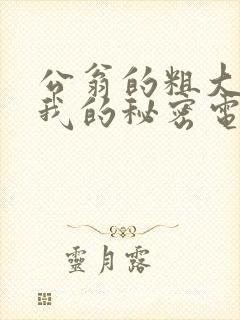 公翁的粗大
我的秘密電
靈月露